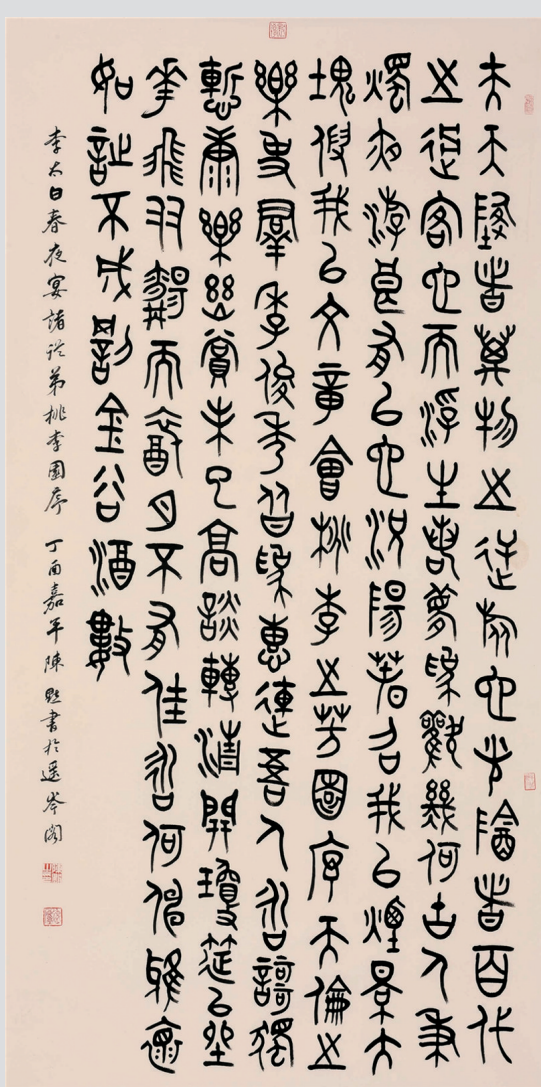 夫天地者萬物之逆旅也光陰者百代
之過客也而浮生若夢爲歡幾何古人秉
燭夜遊良有以也況陽春召我以煙景大
塊假我以文章會桃李之芳園序天倫之
樂事羣季俊秀皆爲惠連吾人詠謌獨
慙康樂幽賞未已高談轉清開瓊筵以坐
華飛羽觴而醉月不有佳詠何伸雅懷
如詩不成罰金谷酒數
李太白春夜宴諸從弟桃李園序 丁酉嘉平陳書於遥岑阁